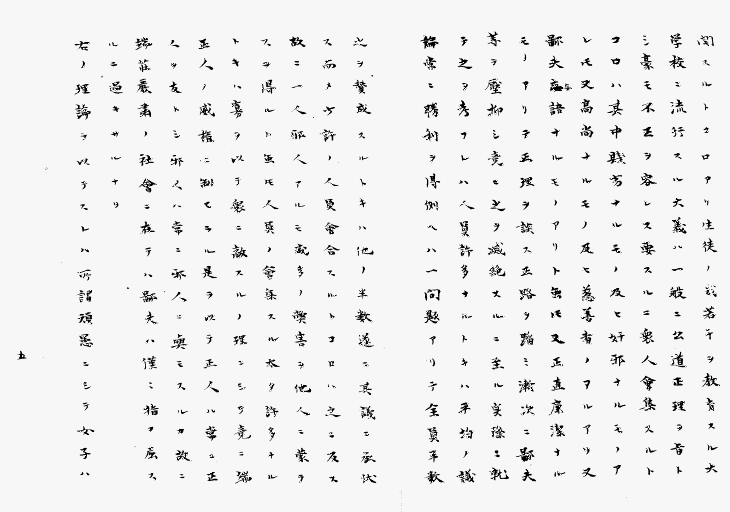 関スルトクロアリ生徒ノ幾若干ヲ教育スル大
学校ニ流行スル大義ハ一般ニ公道正理ヲ旨ト
シ毫モ不正ヲ容レス要スルニ衆人會集スルト
コロハ其中賎劣ナルモノ及ヒ奸邪ナルモノア
レモ又高尚ナルモノ及ヒ慈善者ノアルアリ又
鄙夫ナルモノアリト虽モ又正直廉潔ナル
モノアリテ正理ヲ談ス正路ヲ踏ミ漸次ニ鄙夫
等ヲ壓抑シ竟ニ之ヲ滅絶スルニ至ル実際ニ就
テ之ヲ考フレハ人員許多ナルトキハ平均ノ議
論常ニ勝利ヲ得例ヘハ一問題アリテ全員半数
之ヲ賛成スルトキハ他ノ半数遂ニ其議ニ承伏
ス而メ少許ノ人員會合スルトコロハ之ニ反ス
故ニ一人邪人アルモ許多ノ獘害ヲ他人ニ蒙ヲ
スヲ得ルト虽モ人員ノ會集スル太タ許多ナル
トキハ寡ヲ以テ衆ニ敵スルノ理ニシテ竟ニ端
正人ノ威権ニ制セラル是ヲ以テ正人ハ常ニ正
人ヲ友トシ邪人ハ常ニ邪人ニ與ミスルカ故ニ
端荘嚴肅ノ社會ニ在テハ鄙夫ハ僅ニ指ヲ屈ス
ルニ過キサルナリ
右ノ理論ヲ以テスレハ所謂頑愚ニシテ女子ハ
五